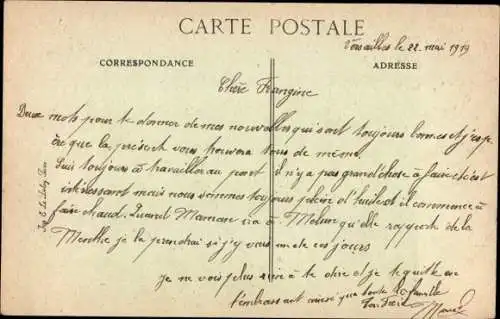 CARTE POSTALE
Versailles le 22 mai 1919
CORRESPONDANCE
ADRESSE
Chère Frangine
Deux mots pour te donner de mes nouvelles qui sont toujours bonnes et j'esp
ère que la présent vous trouvera tous de même.
Suis toujours à travailler au port il n'y a pas grand chose à faire c'est
intéressant mais nous sommes toujours plein d'huile et il commence à
faire chaud. Quand Maman ira à Melun qu'elle rapporte de la
Menthe je la prendrai si j'y vais un de ces jours
je ne vois plus rien à te dire et je te quitte en
t'embrassant ainsi que toute la famille
Ton Frère
Marcel